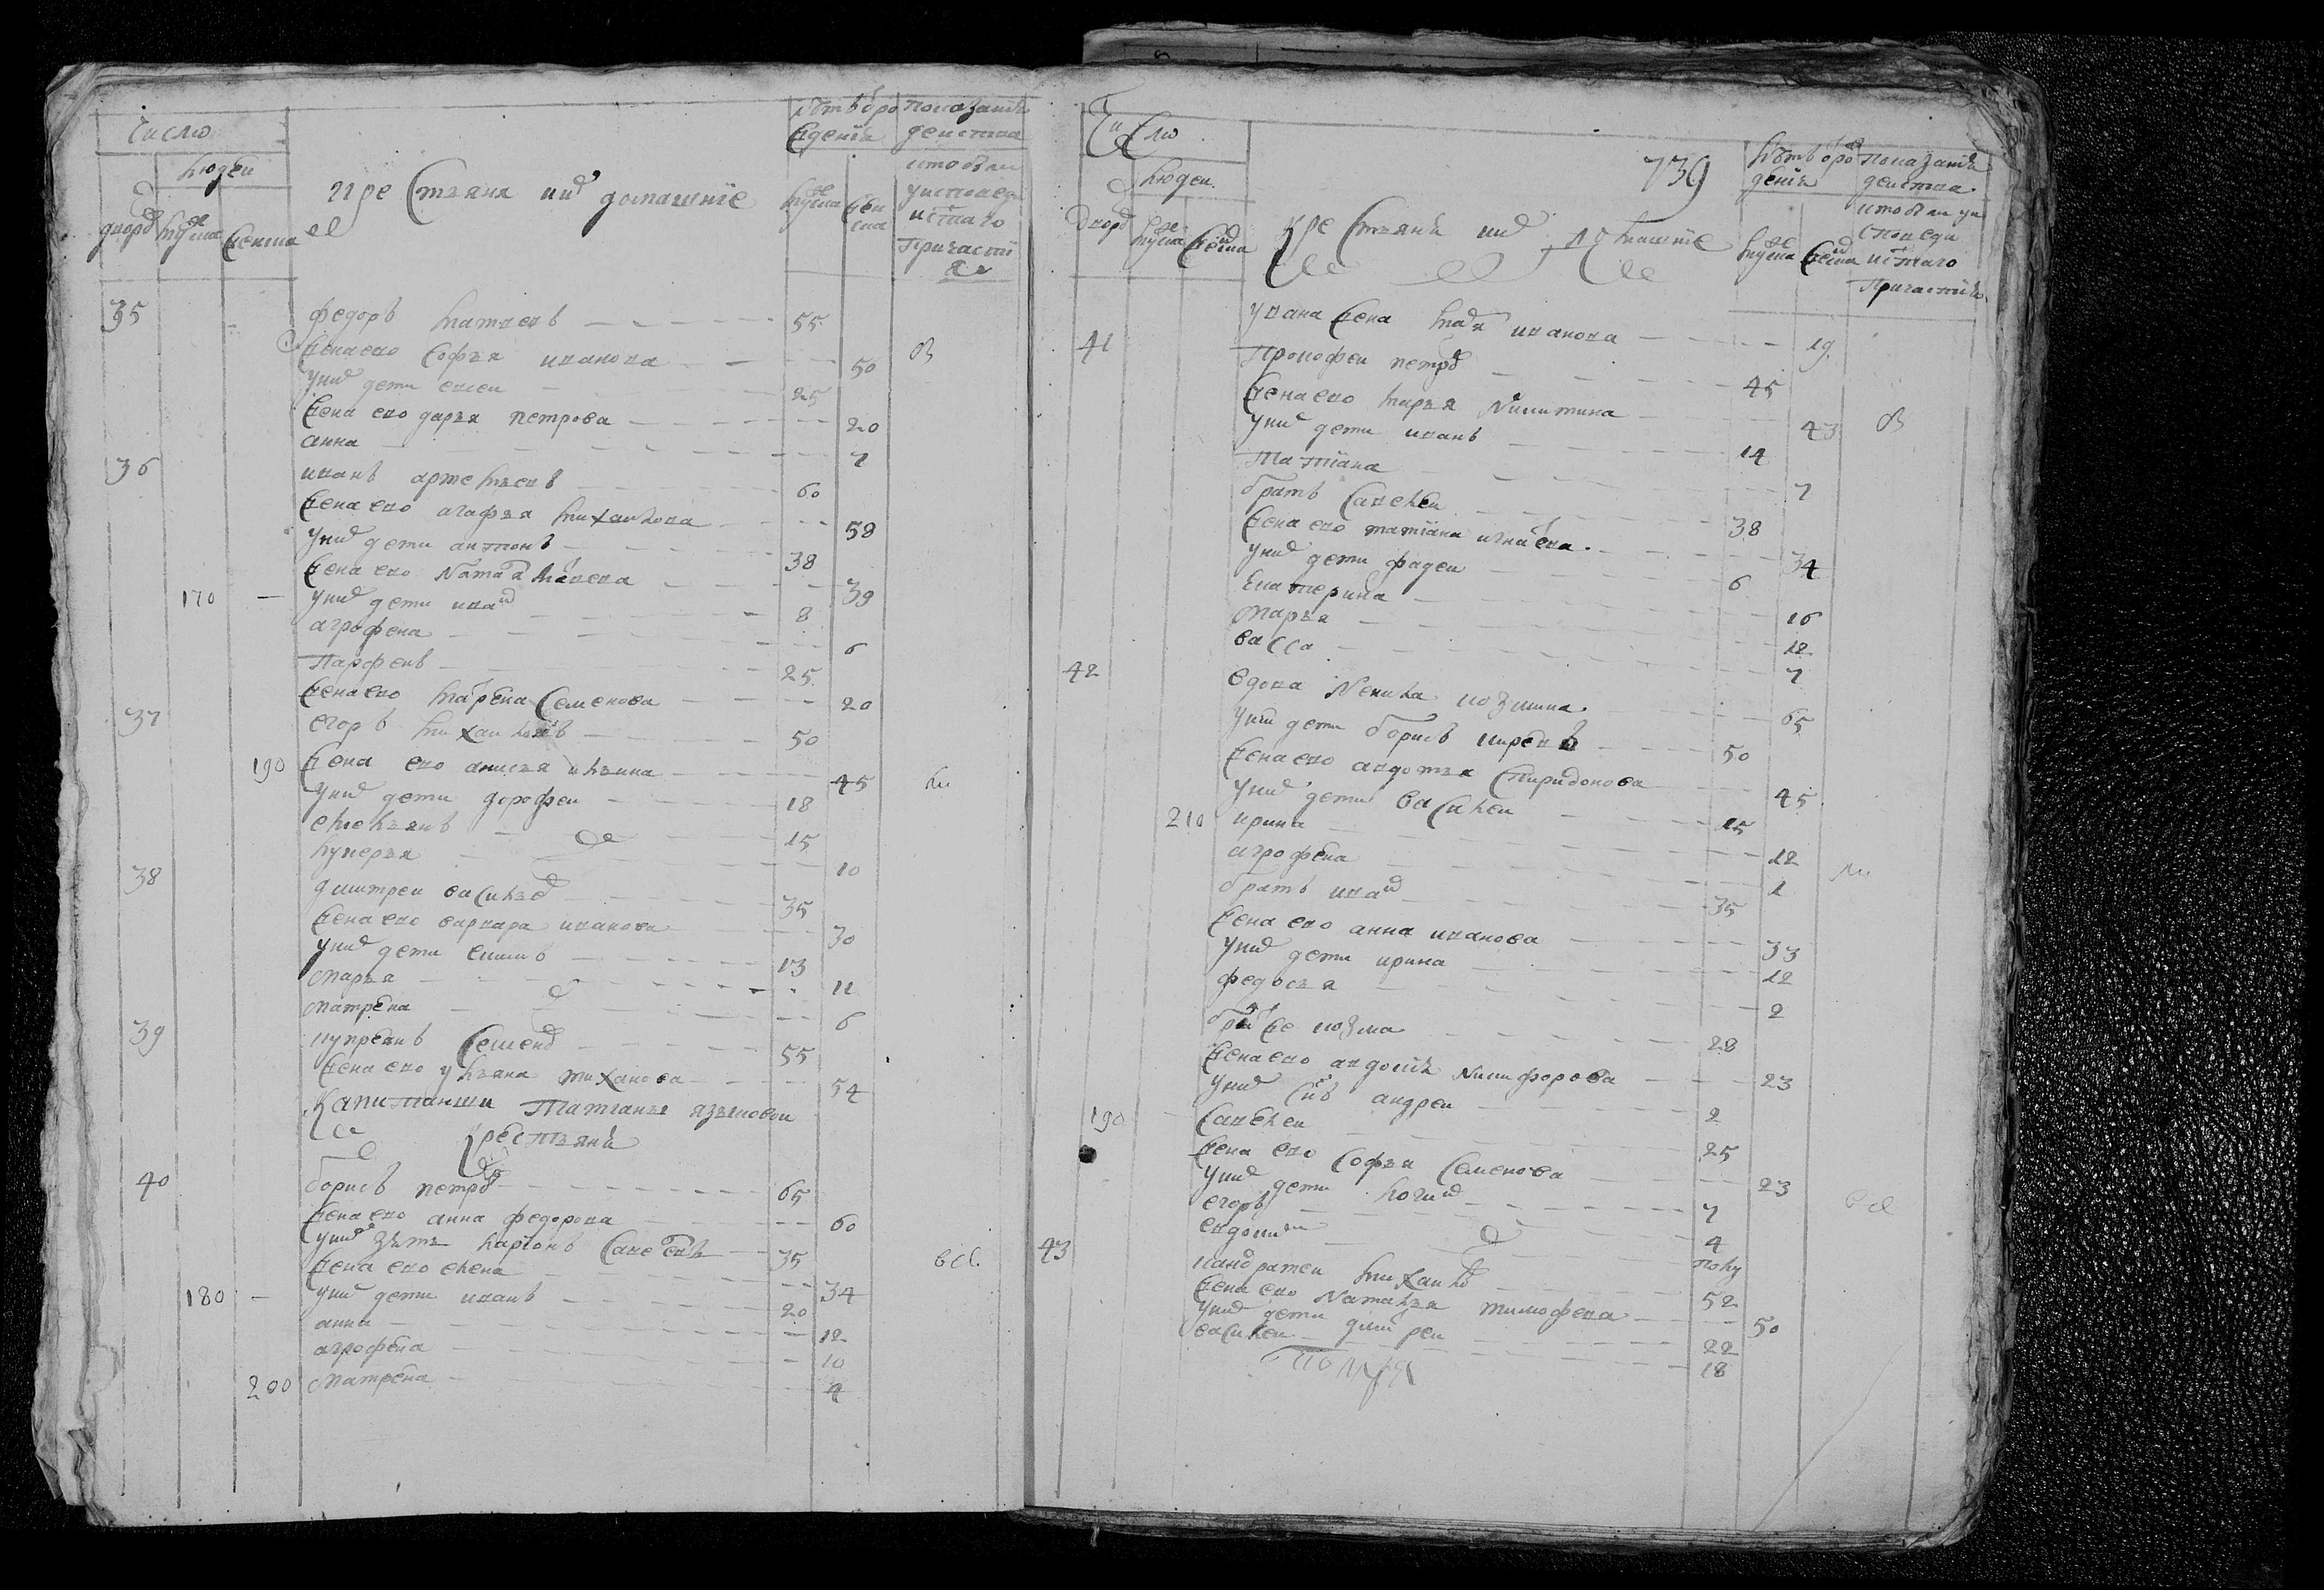 Число
людей
дворовъ мужеска женска
Крестьяня и ихъ домашние
Лѣтъ от рождения
мужеска женска
Показание действа
кто были у исповеди и святаго причастия
35 Федоръ Матвеевъ 55
Жена ево Софья Иванова 50
У нихъ дети Евсеи 25
Жена ево Дарья Петрова 20
Анна 7
36 Иванъ Артемьевъ 60
Жена ево Агафья Михаилова 58
У нихъ дети Антонъ 38
Жена ево 39
170 У нихъ дети Иванъ 8
Агрофена 6
Парфенъ 25
Жена ево Марена Семенова 20
37 Егоръ Михаиловъ 50
190 Жена ево Анисья Ильина 45
У нихъ дети Дорофеи 18
Емельянъ 15
Лукерья 10
38 Дмитреи Васильевъ 35
Жена ево Варвара Иванова 30
У нихъ дети 13
Марья 11
Матрена 6
39 Купреянъ Семеновъ 55
Жена ево Ульяна 54
Капитанши Татьаны Языковои
Крестьяни
40 Борисъ Петровъ 65
Жена ево Анна Федорова 60
У нихъ зять Ларионъ Савельевъ 35
Жена ево Елена 34
180 У нихъ дети Иванъ 20
Анна 12
Агрофена 10
200 Матрена 4
739
Число
людеи
дворовъ мужеска женска
Крестьяня и ихъ домашние
Лѣтъ от рождения
мужеска женска
Показания действа
кто были у исповеди и святаго причастия
У Ивана жена Марья Иванова 19
41 Прокофеи Петровъ 45
Жена ево Марья Никитина 43
У нихъ дети Иванъ 14
Татиана 7
братъ Савелеи 38
Жена ево Татиана Игнатьева 34
У нихъ дети Фадеи 6
Екатерина 16
Марья 12
Васса 7
42 Вдова Ненила Козмина 65
У нии дети Борисъ Киреевъ 50
Жена ево Авдотья Спиридонова 45
У нихъ дети Василеи 15
210 Ирина 12
Агрофена 1
братъ Иванъ 35
Жена ево Анна Иванова 33
У нихъ дети Ирина 12
Федосья 2
братъ же Козма 28
Жена ево Авдотия Никифорова 23
У нихъ сынъ Андреи 2
190 Савелеи 25
Жена ево Софья Семенова 23
У нихъ дети Логинъ 7
Егоръ 4
Евдоким полу
43 Кандратеи Михаиловъ 52
Жена ево Наталья Тимофеева 50
У нихъ дети Дмитреи 22
Василеи 18